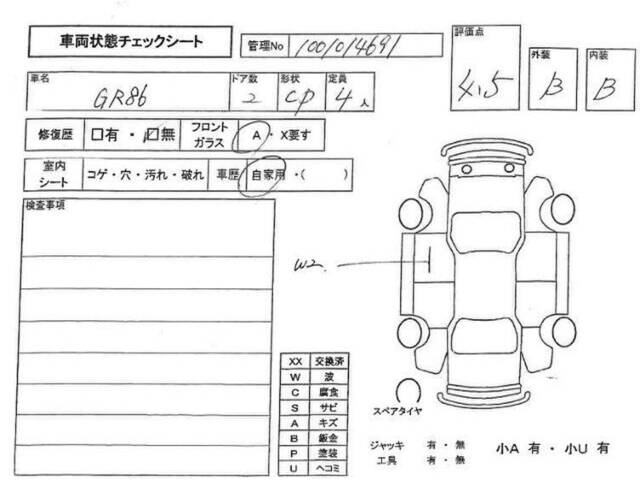 車両状態チェックシート
管理No 1001014691
評価点 4.5
外装 B
内装 B
車名 GR86
ドア数 2
形状 CP
定員 4人
修復歴 □有・☑無
フロントガラス A・X要す
室内シート コゲ・穴・汚れ・破れ
車歴 自家用・( )
検査事項
W2
XX 交換済
W 波
C 腐食
S サビ
A キズ
B 鈑金
P 塗装
U ヘコミ
スペアタイヤ
ジャッキ 有・無
工具 有・無
小A 有・小U 有